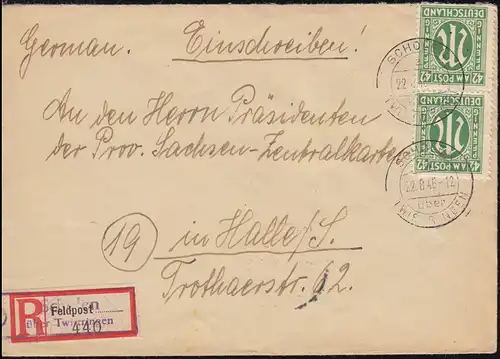 German. Einschreiben!
An den Herrn Präsidenten
der Prov. Sachsen-Zentralkartei
(19) in Halle/S.
Trothaerstr. 62.
DEUTSCHLAND
PFENNIG
42 AM POST 42
DEUTSCHLAND
PFENNIG
42 AM POST 42
SCHO
22.
22.8.46-12
über
TWISTRINGEN
R
Feldpost
über Twistringen
440